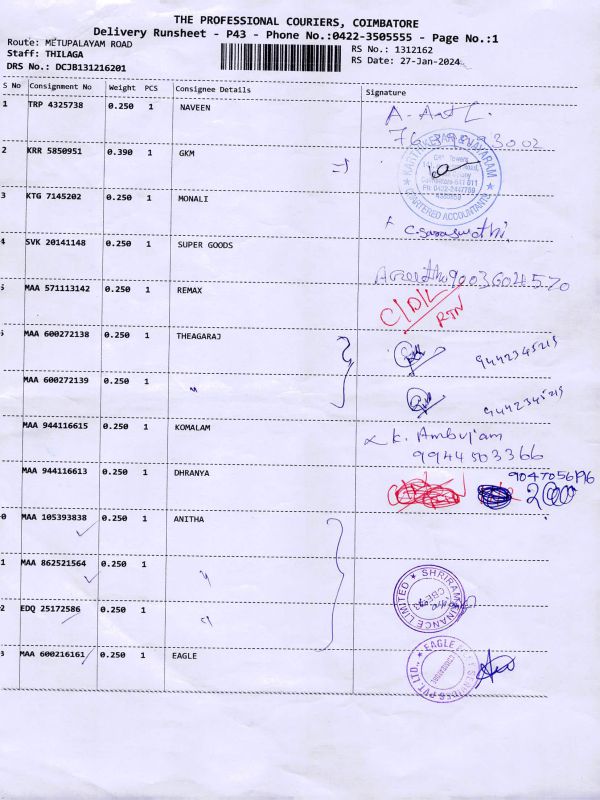 THE PROFESSIONAL COURIERS, COIMBATORE
Delivery Runsheet - P43 - Phone No.:0422-3505555 - Page No.:1
Route: METUPALAYAM ROAD RS No.: 1312162
Staff: THILAGA RS Date: 27-Jan-2024
DRS No.: DCJB131216201
S No Consignment No Weight PCS Consignee Details Signature
1 TRP 4325738 0.250 1 NAVEEN
2 KRR 5850951 0.390 1 GKM
CHARTERED ACCOUNTANTS
3 KTG 7145202 0.250 1 MONALI C. Saraswathi.
4 SVK 20141148 0.250 1 SUPER GOODS 9003604570
MAA 571113142 0.250 1 REMAX C/D/L
RTN
MAA 600272138 0.250 1 THEAGARAJ 9442345219
MAA 600272139 0.250 1 " 9442345219
MAA 944116615 0.250 1 KOMALAM K. Ambujam
9944503366
MAA 944116613 0.250 1 DHRANYA
0 MAA 105393838 0.250 1 ANITHA
1 MAA 862521564 0.250 1 "
2 EDQ 25172586 0.250 1 "
SHRIRAM FINANCE LIMITED
CBE
3 MAA 600216161 0.250 1 EAGLE
EAGLE SERVICES PVT. LTD.
COIMBATORE